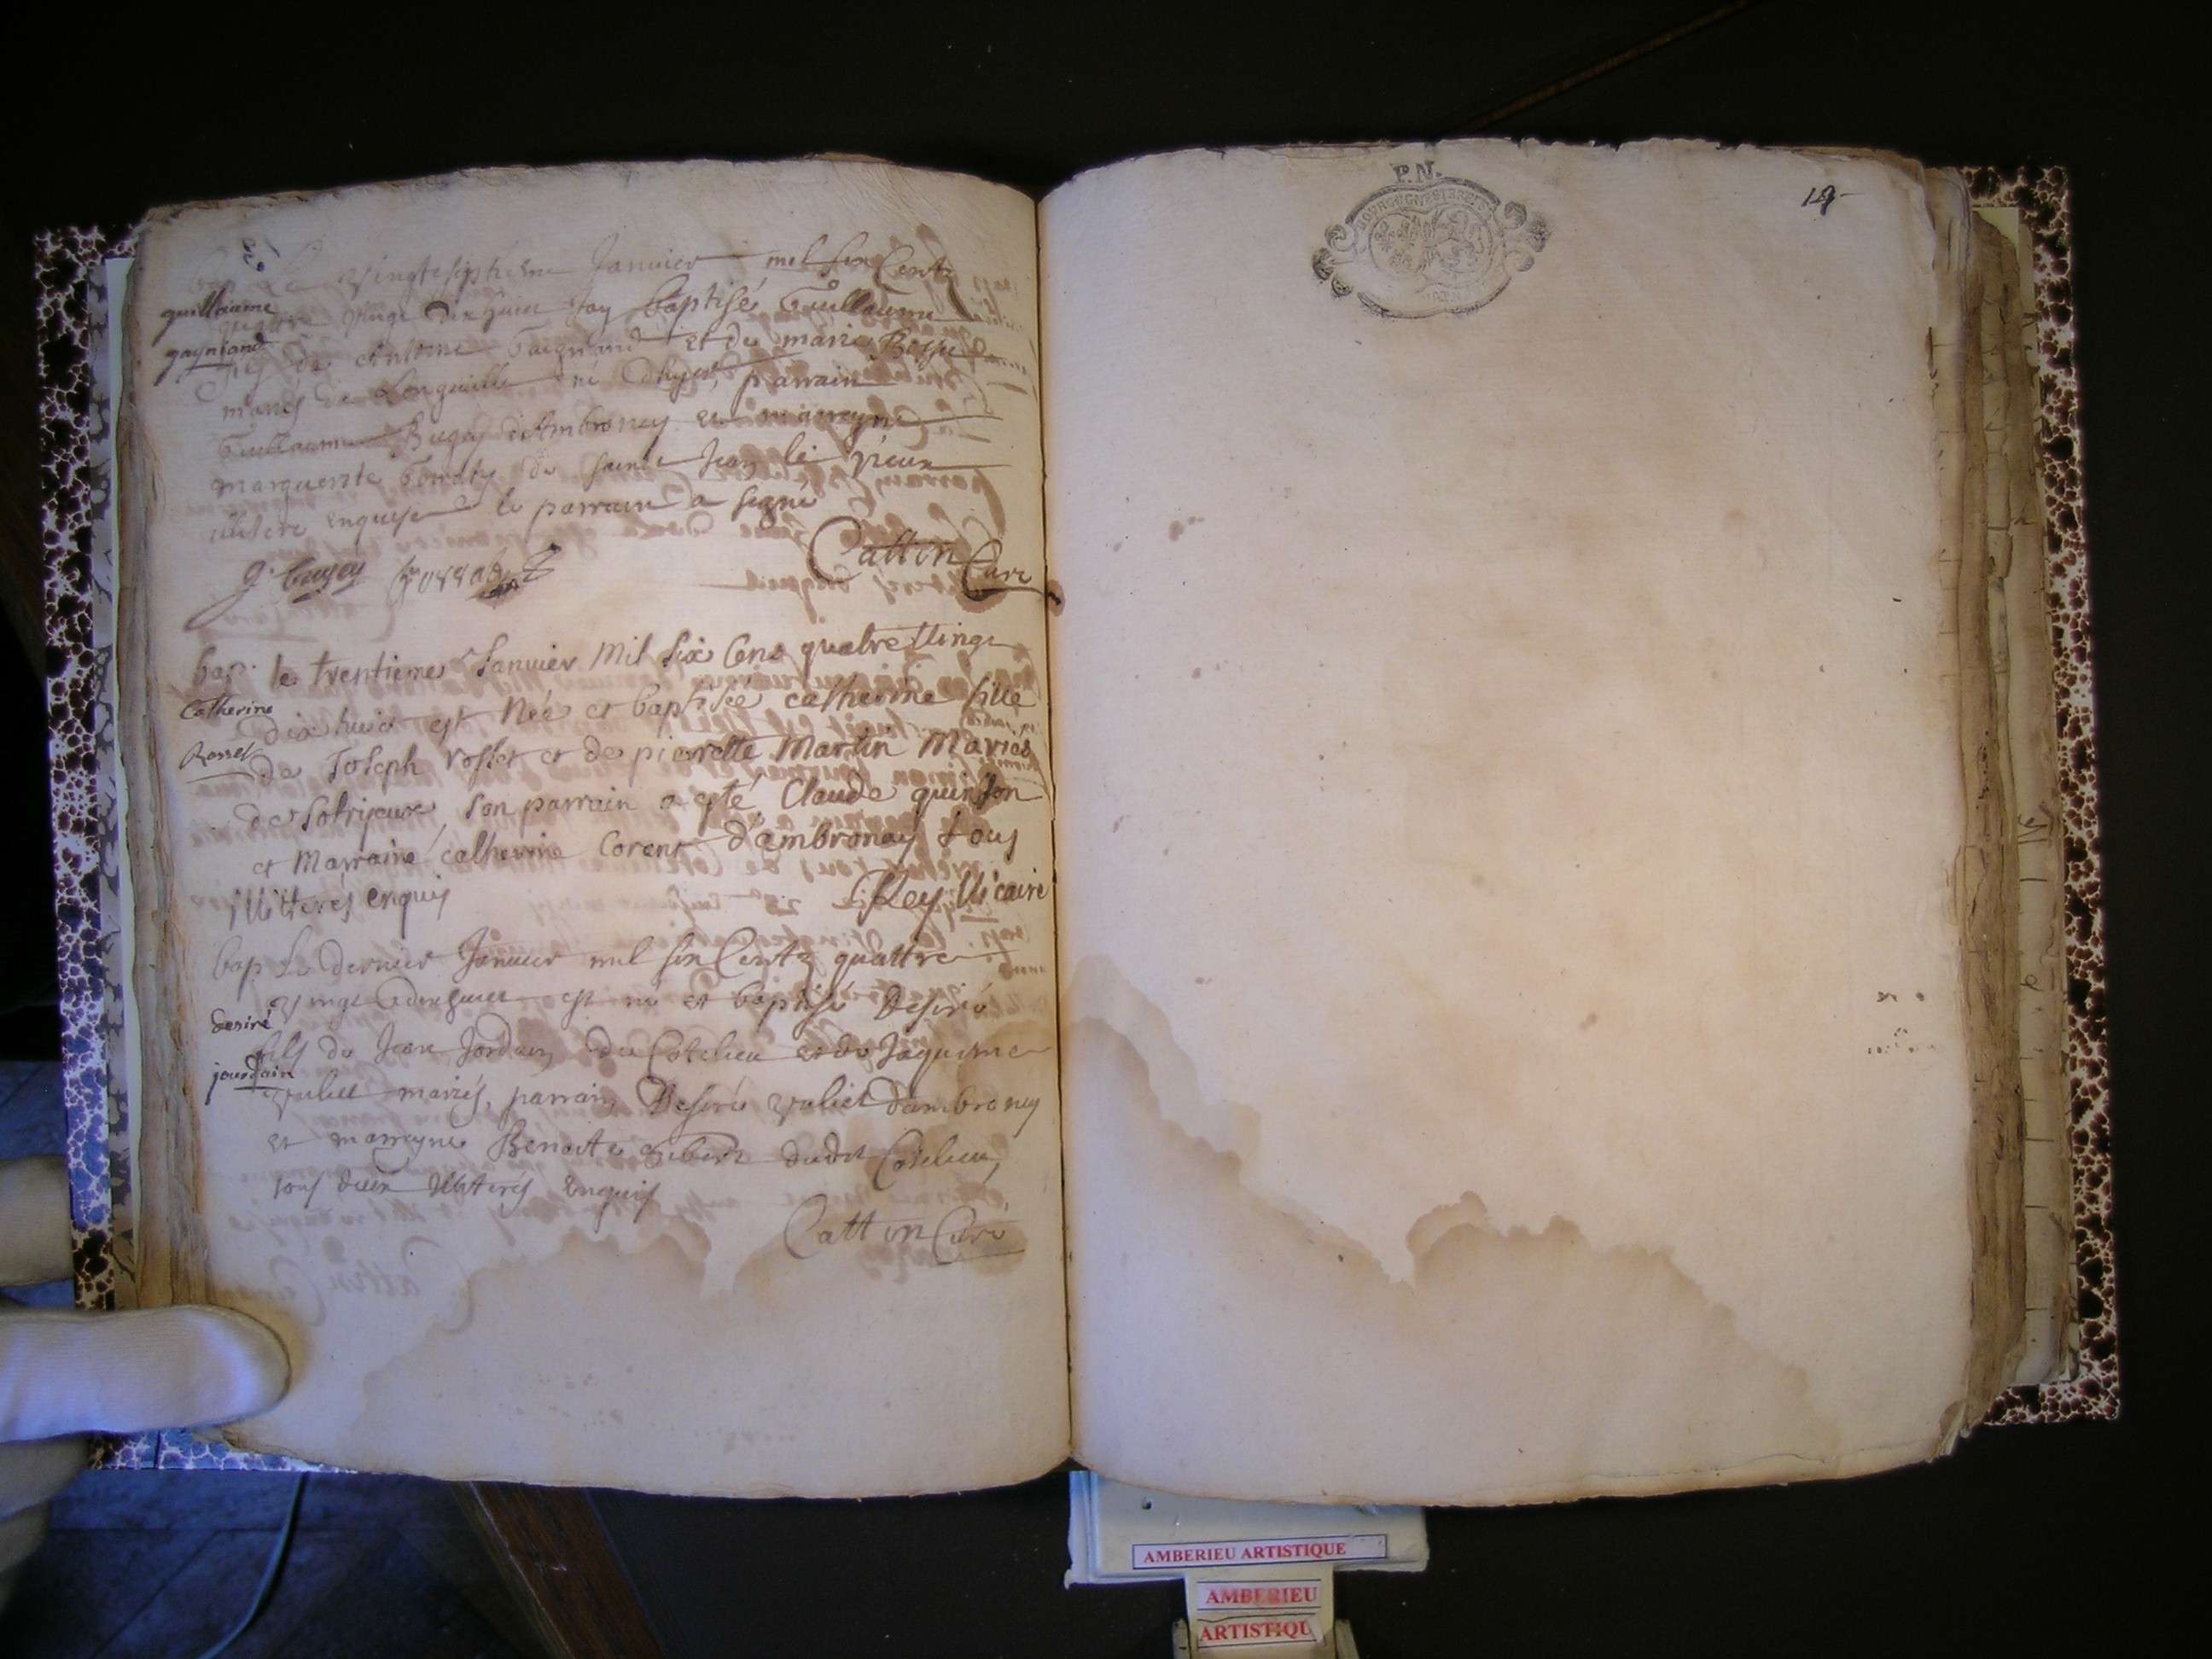 Le vingtesiptieme Janvier mil six Centz
guillaume
quattre vingt dix huict Jay baptisé Guillaume
gayniand
fils de Antoine Gaigniand et de marie
mariés de Longeville parrain
Guillaume Bugey d'Ambronay et marreyne
marguerite de Saint Jean le vieux
illiterè enquise le parrain a signé
Cattin Curé
bap. le trentieme Janvier Mil six Cens quatre Vingt
Catherine
dix huict est Née et baptisée catherine fille
Rosset
de Joseph rosset et de pierrette Martin Mariés
de Sotrijeure, son parrain a esté Claude quinson
et Marraine catherine Corent d'ambronay tous
illitterés enquis
Rey Vicaire
bap Le dernier Janvier mil six Centz quattre
vingt dixhuict est né et baptisé Desiré
desiré
fils de Jean Jordain du Cotelieu et de Jaqueme
jourdain
vuliet mariés, parrain Desiré vuliet d'ambronay
et marreyne Benoite Gubert dudit Cotelieu,
tous deux illiterés Enquis
Cattin Curé
P.N.
BOURGOGNE ET BRESSE
19
AMBERIEU ARTISTIQUE
AMBERIEU
ARTISTIQU